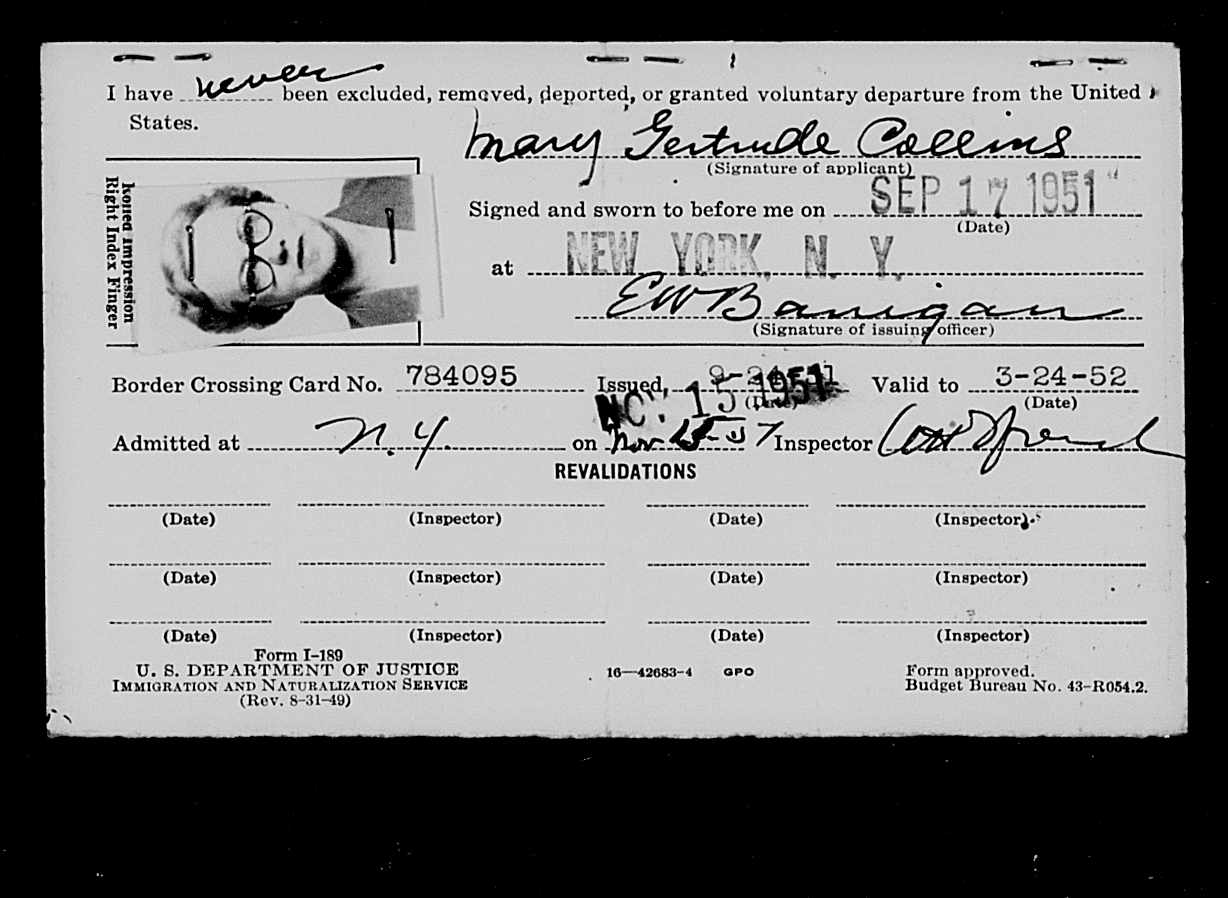 I have never been excluded, removed, deported, or granted voluntary departure from the United
States.
Mary Gertrude Collins
(Signature of applicant)
Rolled Impression
Right Index Finger
Signed and sworn to before me on SEP 17 1951
(Date)
at NEW YORK, N. Y.
EW Banigan
(Signature of issuing officer)
Border Crossing Card No. 784095 Issued 9-24-51 Valid to 3-24-52
NOV 15 1951
(Date) (Date)
Admitted at N.Y. on Nov Inspector
REVALIDATIONS
(Date) (Inspector) (Date) (Inspector)
(Date) (Inspector) (Date) (Inspector)
(Date) (Inspector) (Date) (Inspector)
Form I-189
U. S. DEPARTMENT OF JUSTICE 16—42683-4 GPO Form approved.
IMMIGRATION AND NATURALIZATION SERVICE Budget Bureau No. 43-R054.2.
(Rev. 8-31-49)